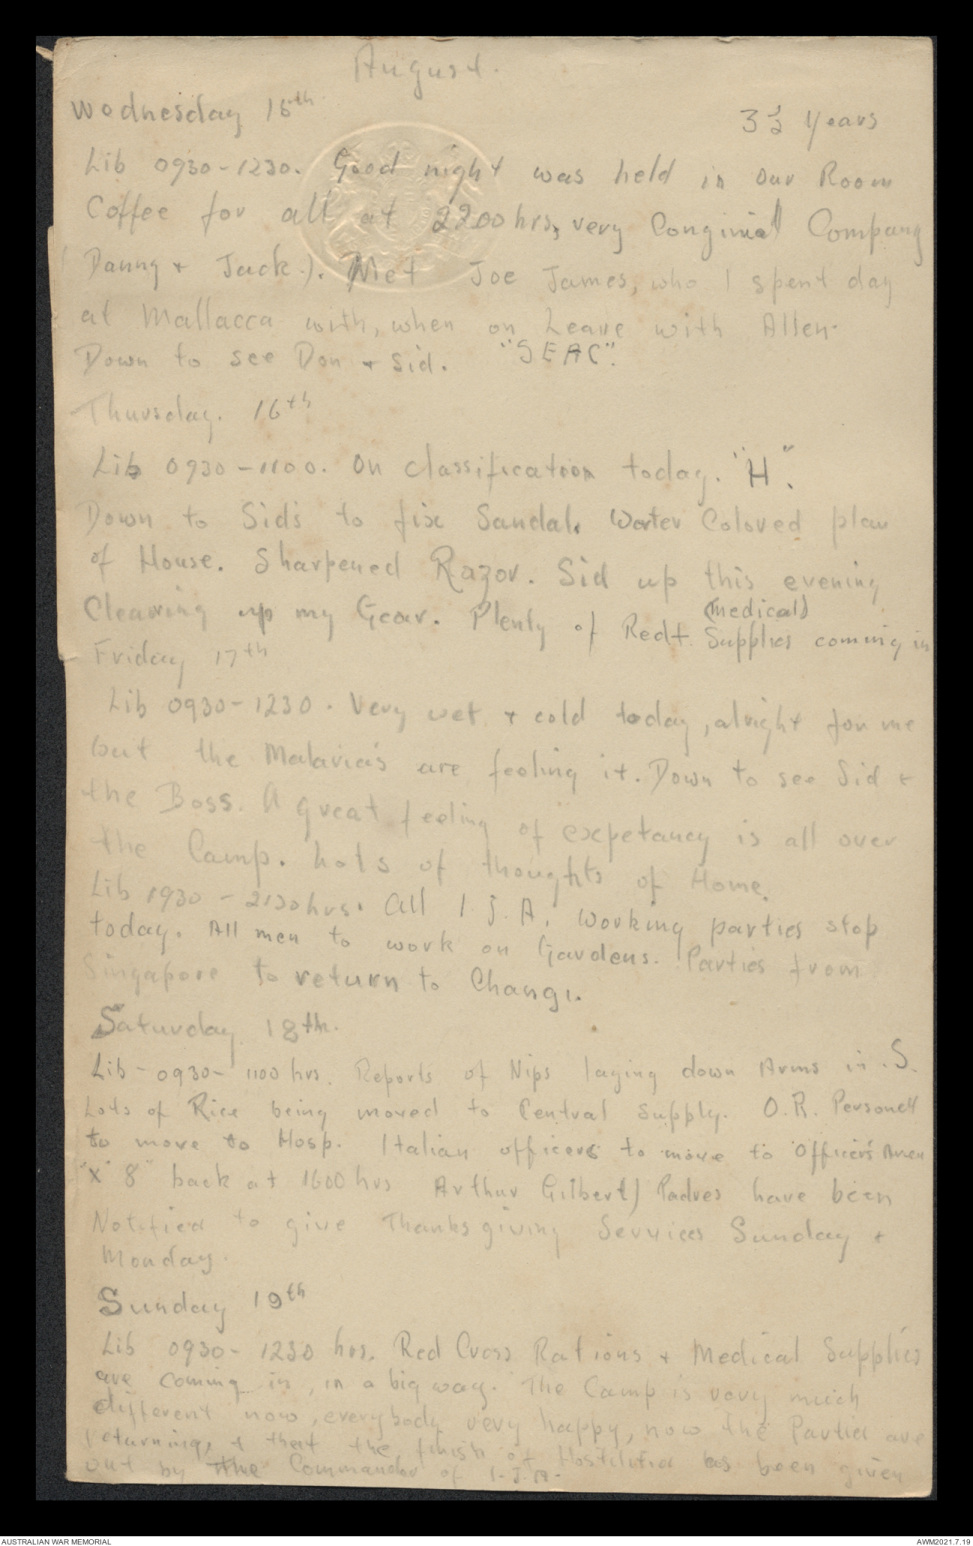 August.
Wednesday 15th
3½ Years
Lib 0930-1230. Good night was held in our Room
Coffee for all at 2200 hrs, very Conginial Company
Danny + Jack.). Met Joe James, who I spent day
at Mallacca with, when on Leave with Allen.
Down to see Don + Sid. "SEAC".
Thursday. 16th
Lib 0930-1100. On classification today. "H".
Down to Sid's to fix Sandal. Water Colored plan
of House. Sharpened Razor. Sid up this evening
(medical)
Clearing up my Gear. Plenty of Red+ Supplies coming in
Friday 17th
Lib 0930-1230. Very wet + cold today, alright for me
but the Malaria's are feeling it. Down to see Sid +
the Boss. A great feeling of expetancy is all over
the Camp. Lots of thoughts of Home.
Lib 1930 - 2130 hrs. All I.J.A. Working parties stop
today. All men to work on Gardens. Parties from
Singapore to return to Changi.
Saturday 18th.
Lib - 0930 - 1100 hrs. Reports of Nips laying down Arms in S.
Lots of Rice being moved to Central Supply. O.R. Personell
to move to Hosp. Italian officers to move to Officers Area
"X" 8" back at 1600 hrs Arthur Gilbert) Padres have been
Notified to give Thanksgiving Services Sunday +
Monday.
Sunday 19th
Lib 0930-1230 hrs. Red Cross Rations + Medical Supplies
are coming in, in a big way. The Camp is very much
different now, everybody very happy, now the Parties are
returning, + that the finish of Hostilities has been given
out by the Commander of I.J.A.
AUSTRALIAN WAR MEMORIAL
AWM2021.7.19